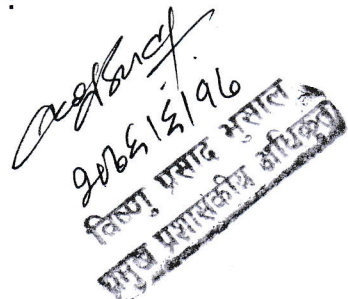 २०७६।६।१७
विष्णु प्रसाद भुसाल
प्रमुख प्रशासकीय अधिकृत